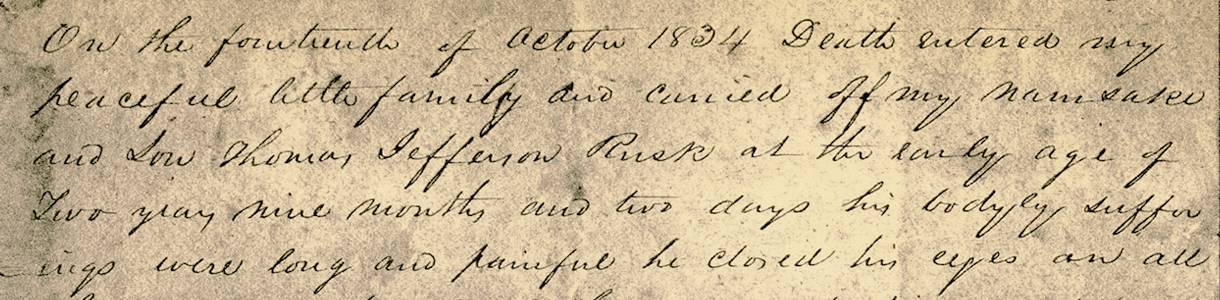 On the fourteenth of October 1834 Death entered my
peaceful little family and carried off my namesake
and Son Thomas Jefferson Rusk at the early age of
Two years nine months and two days his bodyly suffer
ings were long and painful he closed his eyes on all